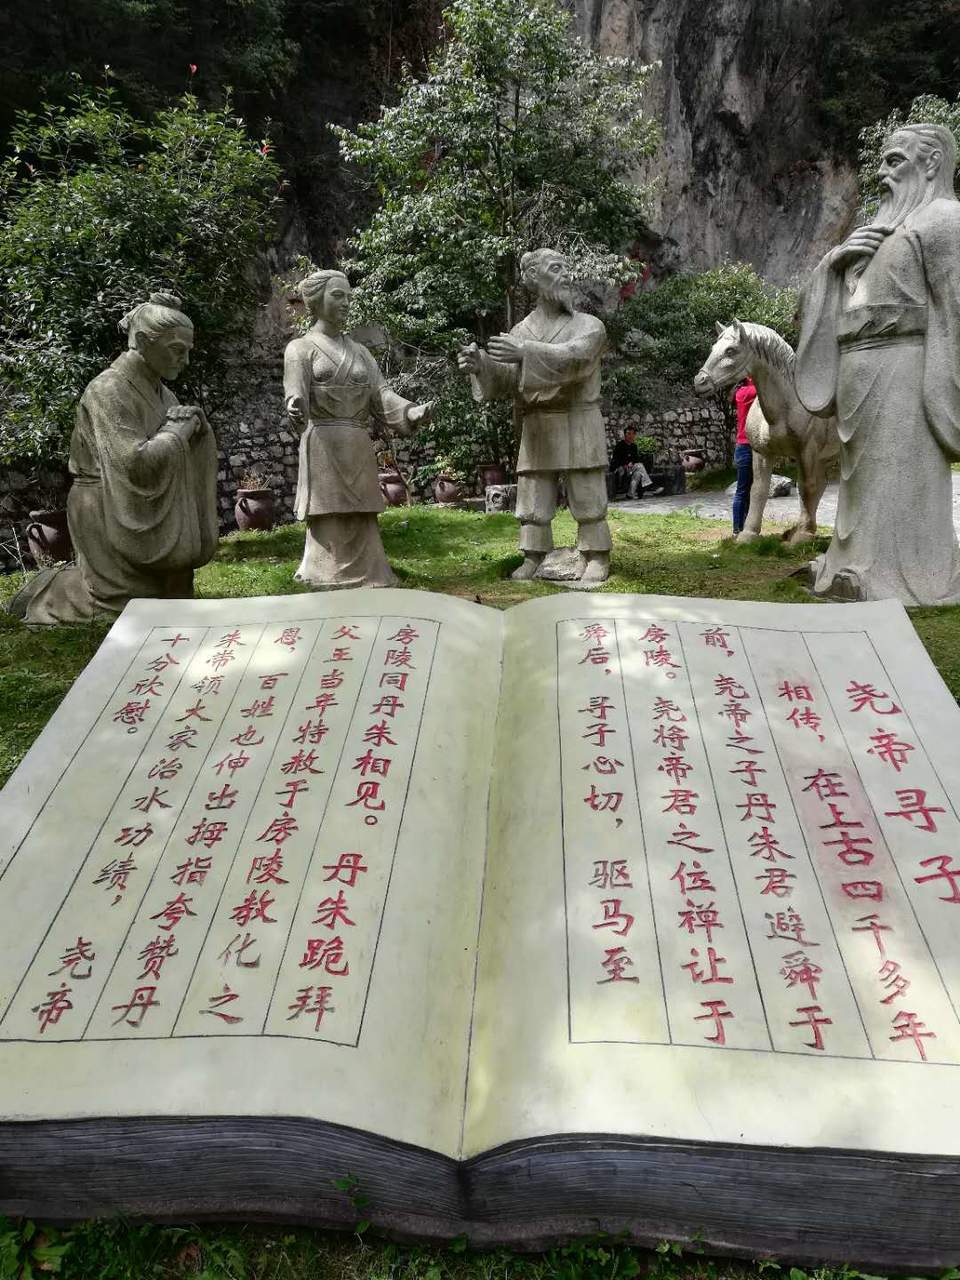 尧帝寻子
相传，在上古四千多年
前，尧帝之子丹朱君避舜于
房陵。尧将帝君之位禅让于
舜后，寻子心切，驱马至
房陵同丹朱相见。丹朱跪拜
父王当年特赦于房陵教化之
恩，百姓也伸出拇指夸赞丹
朱带领大家治水功绩，尧帝
十分欣慰。